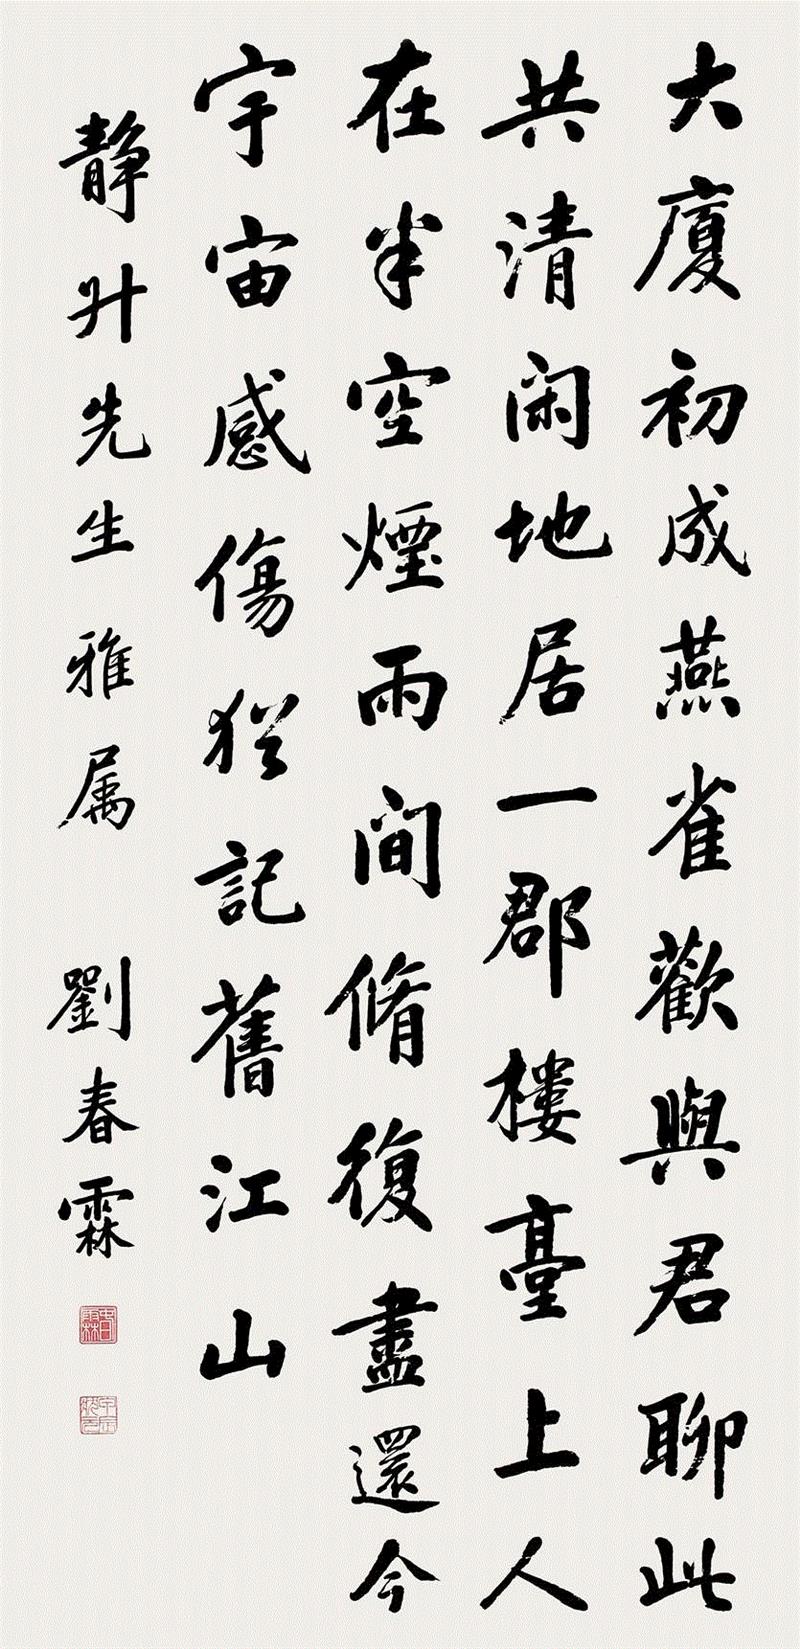 大廈初成燕雀歡與君聊此
共清閑地居一郡樓臺上人
在半空煙雨間脩復盡還今
宇宙感傷猶記舊江山
靜升先生雅属 劉春霖